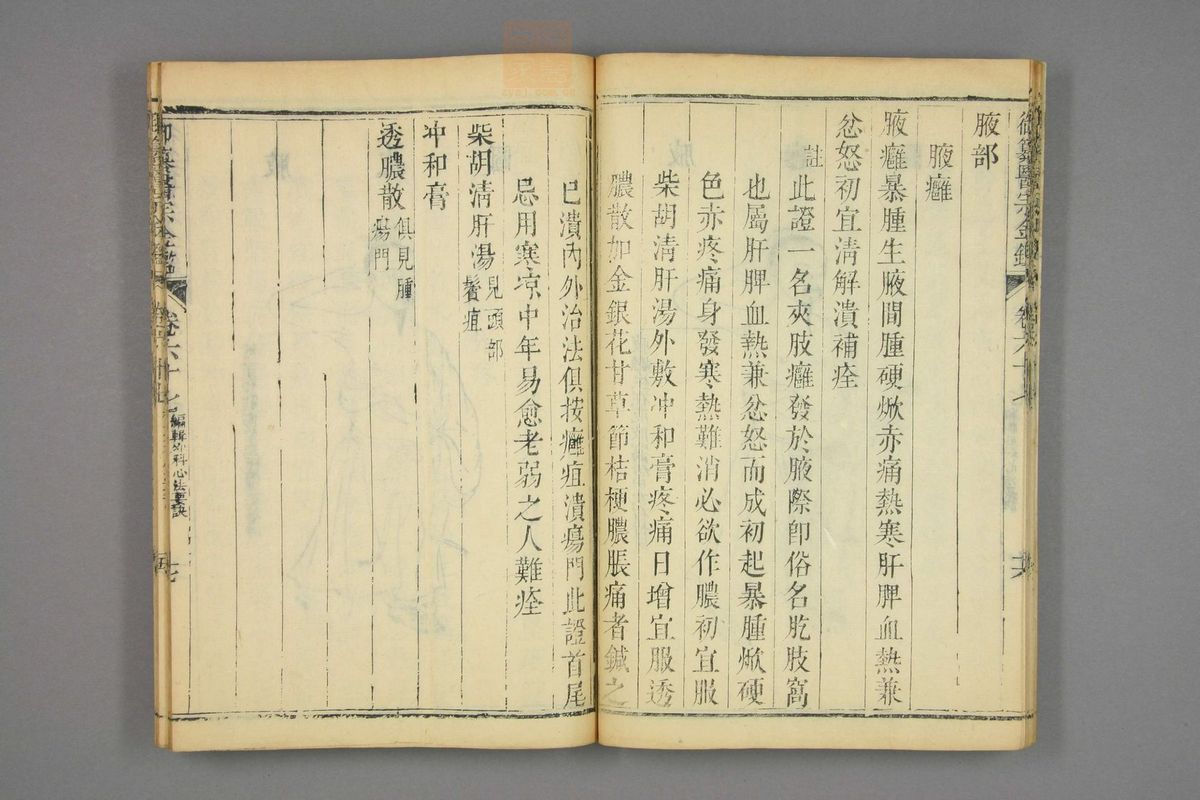 腋部
腋癰
腋癰暴腫生腋間腫硬焮赤痛熱寒肝脾血熱兼
忿怒初宜淸解潰補痊
註此證一名夾肢癰發於腋際卽俗名肐肢窩
也屬肝脾血熱兼忿怒而成初起暴腫焮硬
色赤疼痛身發寒熱難消必欲作膿初宜服
柴胡淸肝湯外敷冲和膏疼痛日增宜服透
膿散加金銀花甘草節桔梗膿脹痛者鍼之
已潰內外治法俱按癰疽潰瘍門此證首尾
忌用寒凉中年易愈老弱之人難痊
柴胡淸肝湯見頭部鬢疽
冲和膏
透膿散俱見腫瘍門
卷六十七 編輯外科心法要訣